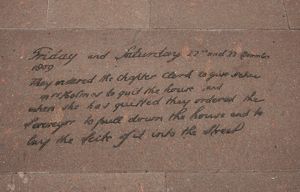 Friday and Saturday 22nd and 23 December
1809
They ordered the Chapter Clerk to give notice
Mrs Holmes to quit the house and
when she has quitted they ordered the
Surveyor to pull down the house and to
lay the Scite of it into the Street